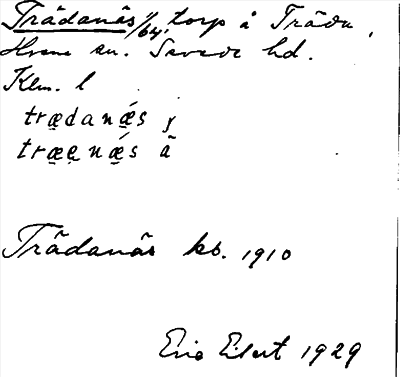 Trädanäs 1/64, torp å Träda,
Hvena sn. Sevede hd.
Klm. l
trædanǽs y
træęnǽs ā
Trädanäs kb. 1910
Eric Eilert 1929